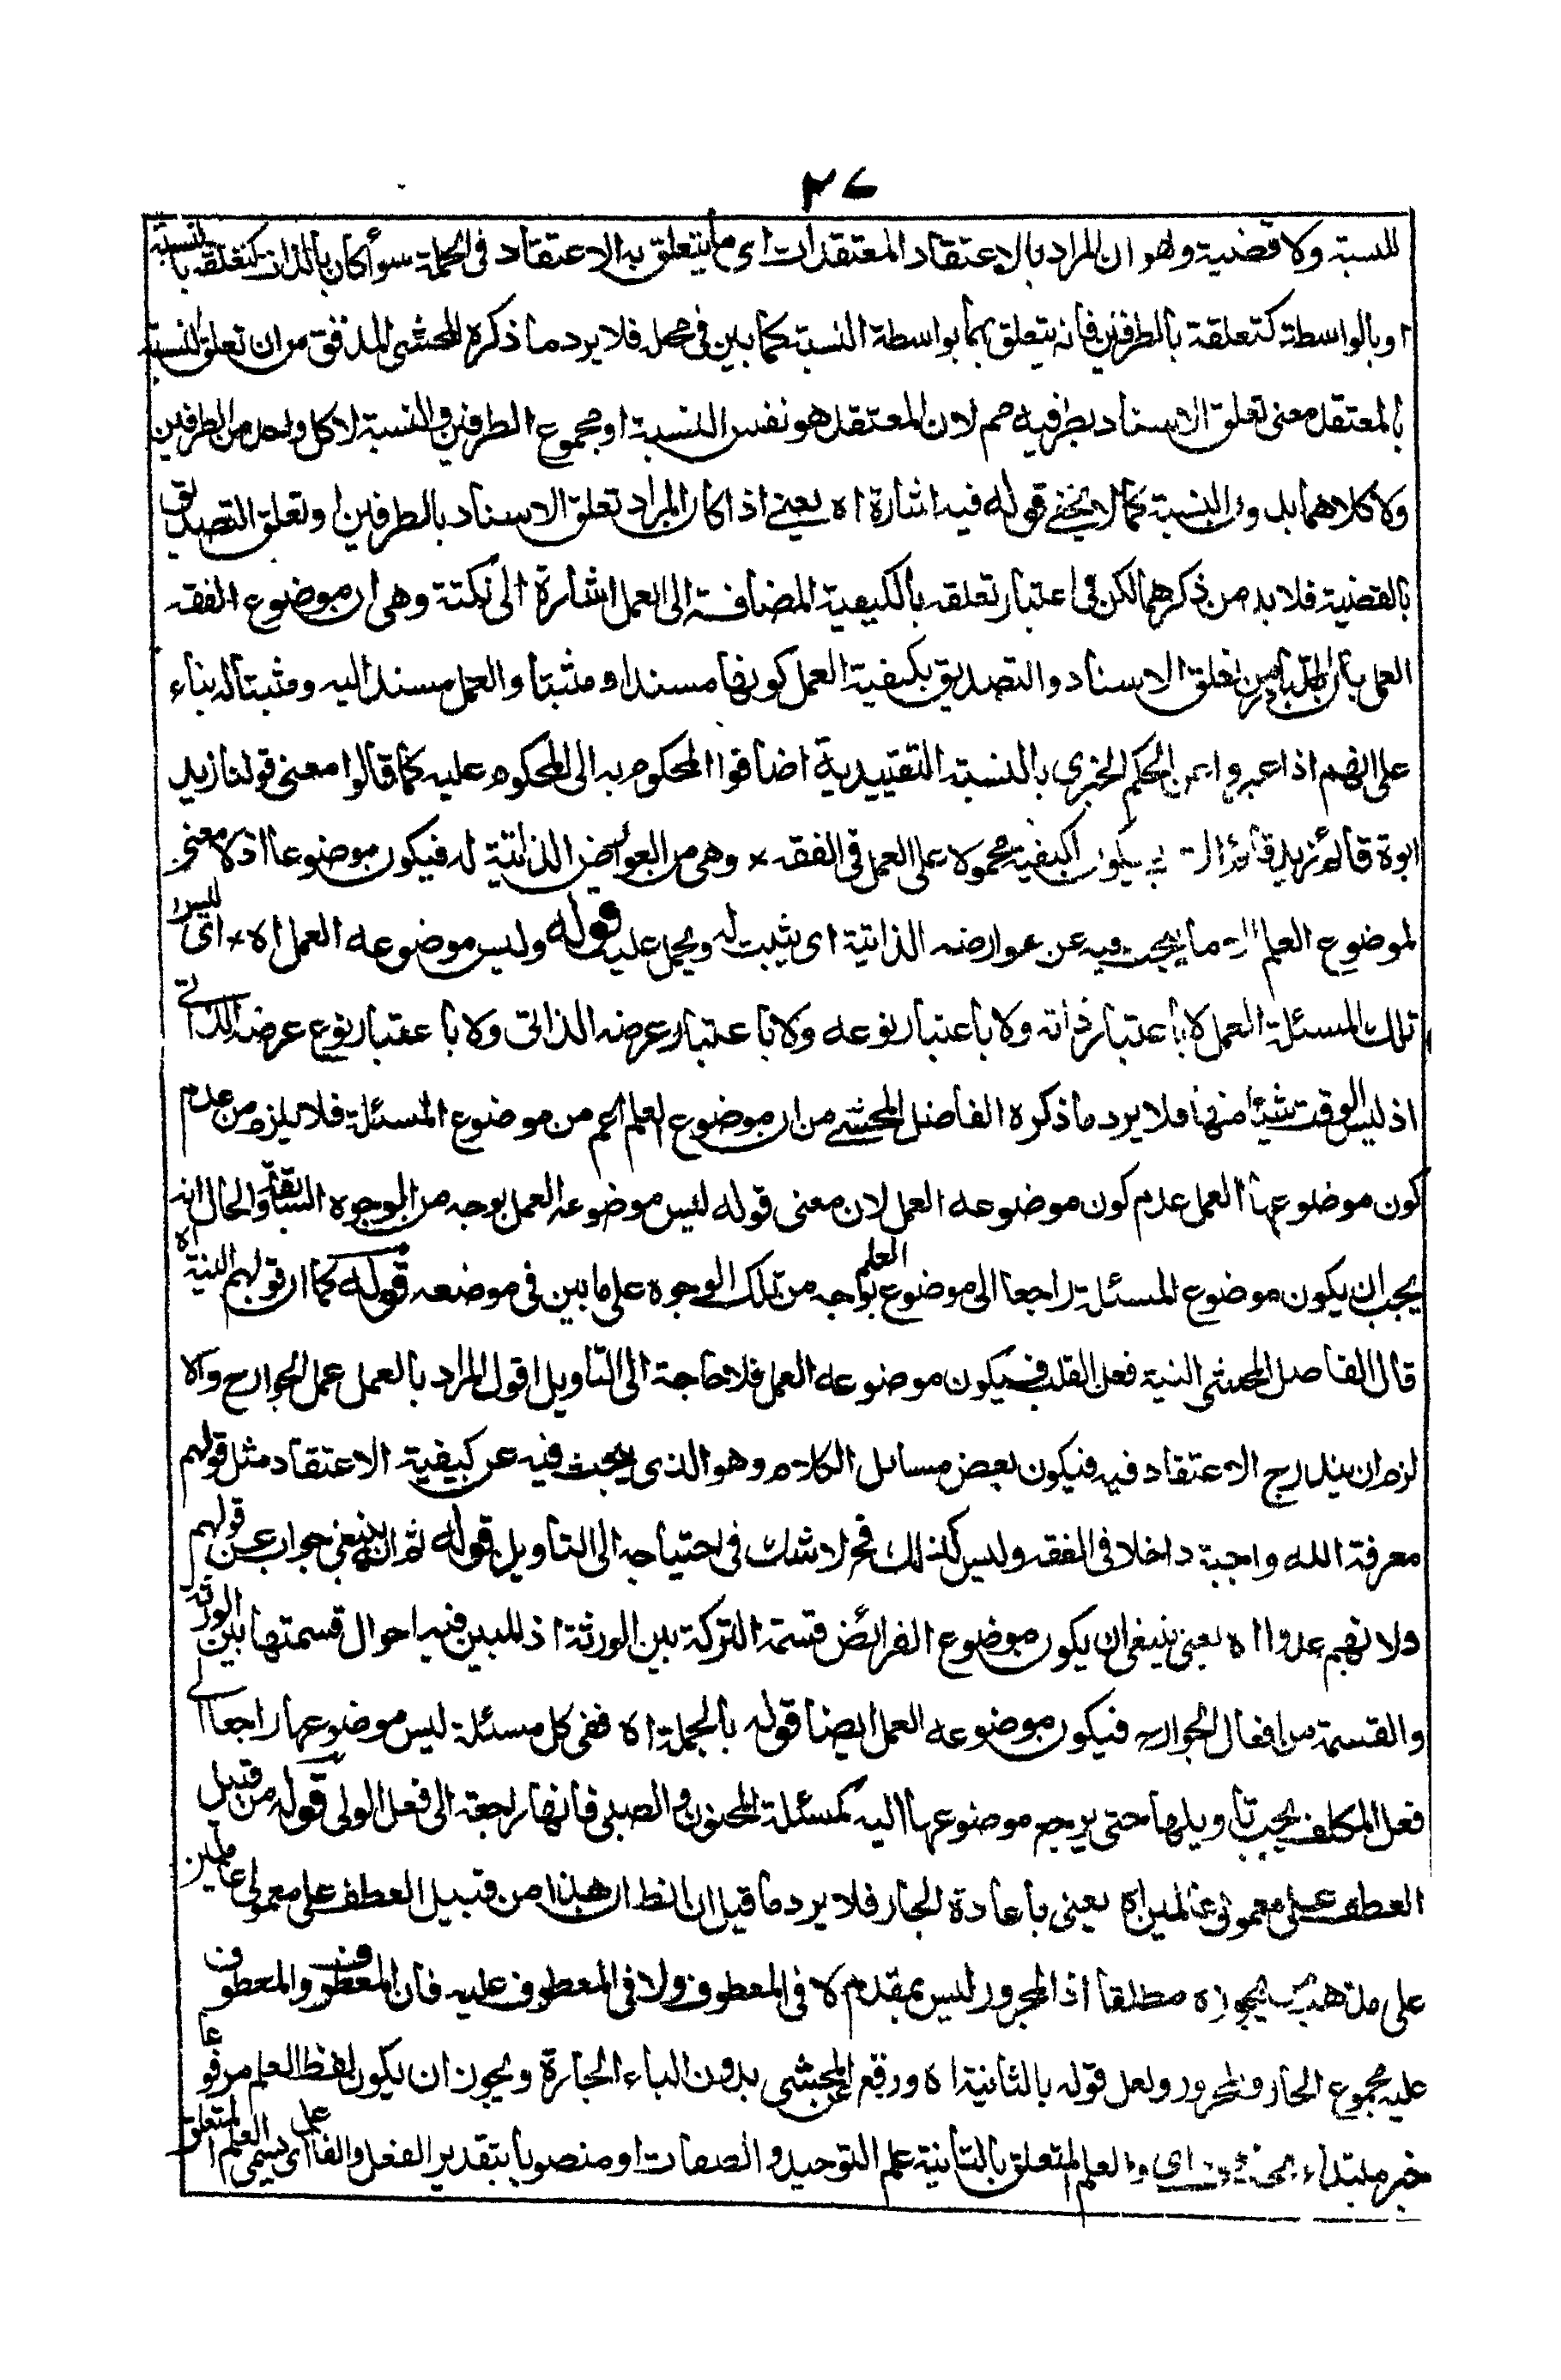 ٢٧
للنسبة ولا قضية وهو ان المراد بالاعتقاد المعتقدات اى ما يتعلق به الاعتقاد فى الجملة سواء كان بالذات كتعلقه بالنسبة
او بالواسطة كتعلقة بالطرفين فانه يتعلق بهما بواسطة النسبة كما بين فى محله فلا يرد ما ذكره المحشى المدقق من ان تعلق النسبة
بالمعتقد معنى تعلق الاسناد بطرفيه مم لان المعتقد هو نفس النسبة او مجموع الطرفين والنسبة لا كل واحد من الطرفين
ولا كلاهما بدون النسبة كما لا يخفى قوله فيه اشارة اه يعنى اذا كان المراد تعلق الاسناد بالطرفين او تعلق التصديق
بالقضية فلا بد من ذكرهما لكن فى اعتبار تعلقه بالكيفية المضافة الى العمل اشارة الى نكتة وهى ان موضوع الفقه
العمل بان المتبادر من تعلق الاسناد والتصديق بكيفية العمل كونها مسندا ومثبتا والعمل مسندا اليه ومثبتا له بناء
على انهم اذا عبروا عن الحكم الخبرى بالنسبة التقييدية اضافوا المحكوم به الى المحكوم عليه كما قالوا معنى قولنا زيد
ابوه قائم زيد قائم الاب فيكون الكيفية محمولا على العمل فى الفقه وهى من العوارض الذاتية له فيكون موضوعا اذ لا معنى
لموضوع العلم الا ما يبحث فيه عن عوارضه الذاتية اى يثبت له ويحمل عليه قوله وليس موضوعه العمل اه اى ليس
تلك المسئلة العمل لا باعتبار ذاته ولا باعتبار نوعه ولا باعتبار عرضه الذاتى ولا باعتبار نوع عرضه الذاتى
اذ ليس الوقت شيئا منها فلا يرد ما ذكره الفاضل المحشى من ان موضوع العلم اعم من موضوع المسئلة فلا يلزم من عدم
كون موضوعها العمل عدم كون موضوعه العمل لان معنى قوله ليس موضوعه العمل بوجه من الوجوه السابقة والحال انه
يجب ان يكون موضوع المسئلة راجعا الى موضوع العلم بوجه من تلك الوجوه على ما بين فى موضعه قوله كما ان قولهم النية اه
قال الفاضل المحشى النية فعل القلب فيكون موضوعه العمل فلا حاجة الى التاويل اقول المراد بالعمل عمل الجوارح والا
لزم ان يندرج الاعتقاد فيه فيكون بعض مسائل الكلام وهو الذى يبحث فيه عن كيفية الاعتقاد مثل قولهم
معرفة الله واجبة داخلا فى الفقه وليس كذلك فح لا شك فى احتياجه الى التاويل قوله ثم انه ينبغى جواب عن قولهم
ولانهم عدوا اه يعنى ينبغى ان يكون موضوع الفرائض قسمة التركة بين الورثة اذ المبين فيه احوال قسمتها بين الورثة
والقسمة من افعال الجوارح فيكون موضوعه العمل ايضا قوله بالجملة اه ففى كل مسئلة ليس موضوعها راجعا الى
فعل المكلف يجب تاويلها حتى يرجع موضوعها اليه كمسئلة المجنون والصبى فانها راجعة الى فعل الولى قوله من قبيل
العطف على معمولى عاملين اه يعنى باعادة الجار فلا يرد ما قيل ان النظر ان هذا من قبيل العطف على معمولى عاملين
على مذهب يجوزه مطلقا اذ المجرور ليس بمقدم لا فى المعطوف ولا فى المعطوف عليه فان المعطوف والمعطوف
عليه مجموع الجار والمجرور ولعل قوله بالثانية اه ورقع عن المحشى بدون الباء الجارة ويجوز ان يكون لفظ العلم مرفوعا
خبر مبتداء محذوف اى والعلم المتعلق بالثانية علم التوحيد والصفات او منصوبا بتقدير الفعل والفاعل اى يسمى العلم المتعلق